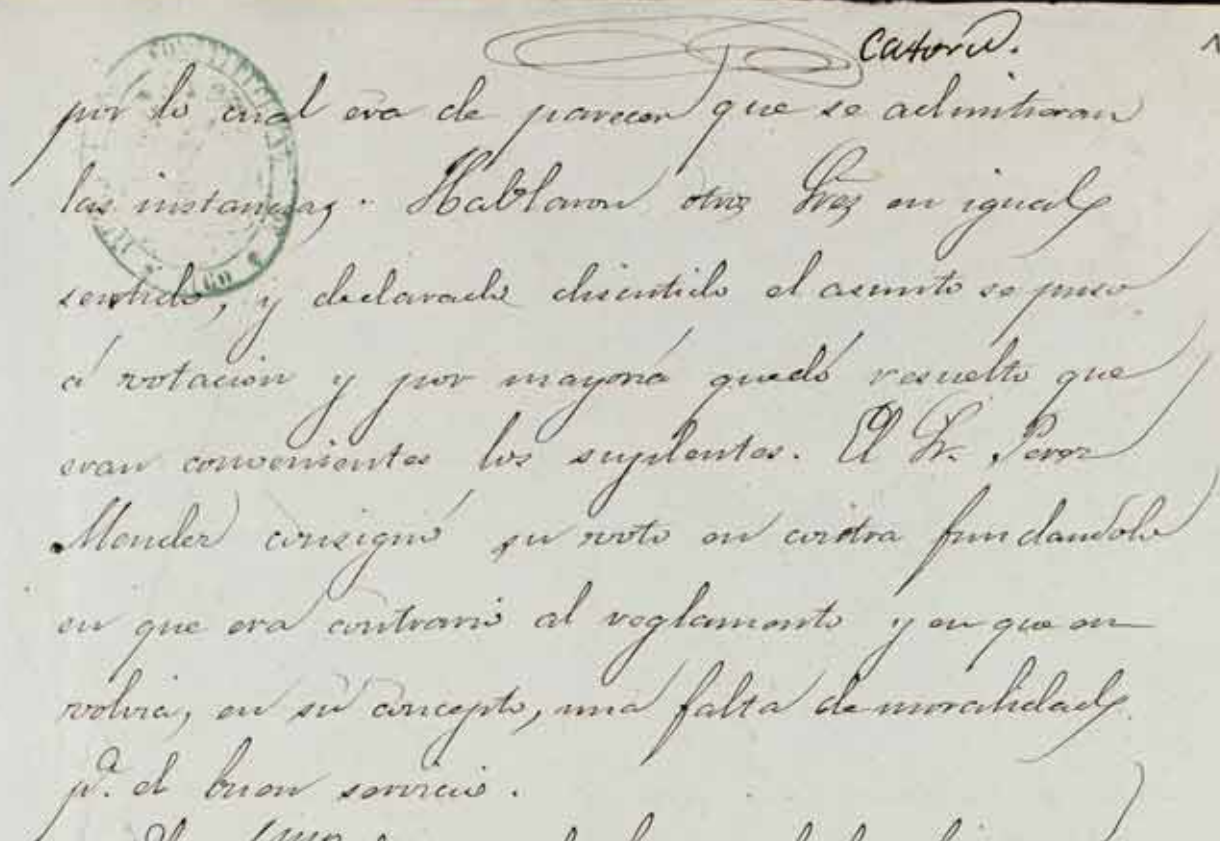 Catorce.
por lo cual era de parecer que se admitieran
las instancias. Hablaron otros Sres en igual
sentido, y declarado discutido el asunto se puso
á votación y por mayoría quedó resuelto que
eran convenientes los suplentes. El Sr. Perez
Mendez consignó su voto en contra fundandolo
en que era contrario al reglamento y en que en
volvia, en su concepto, una falta de moralidad
pª. el buen servicio.